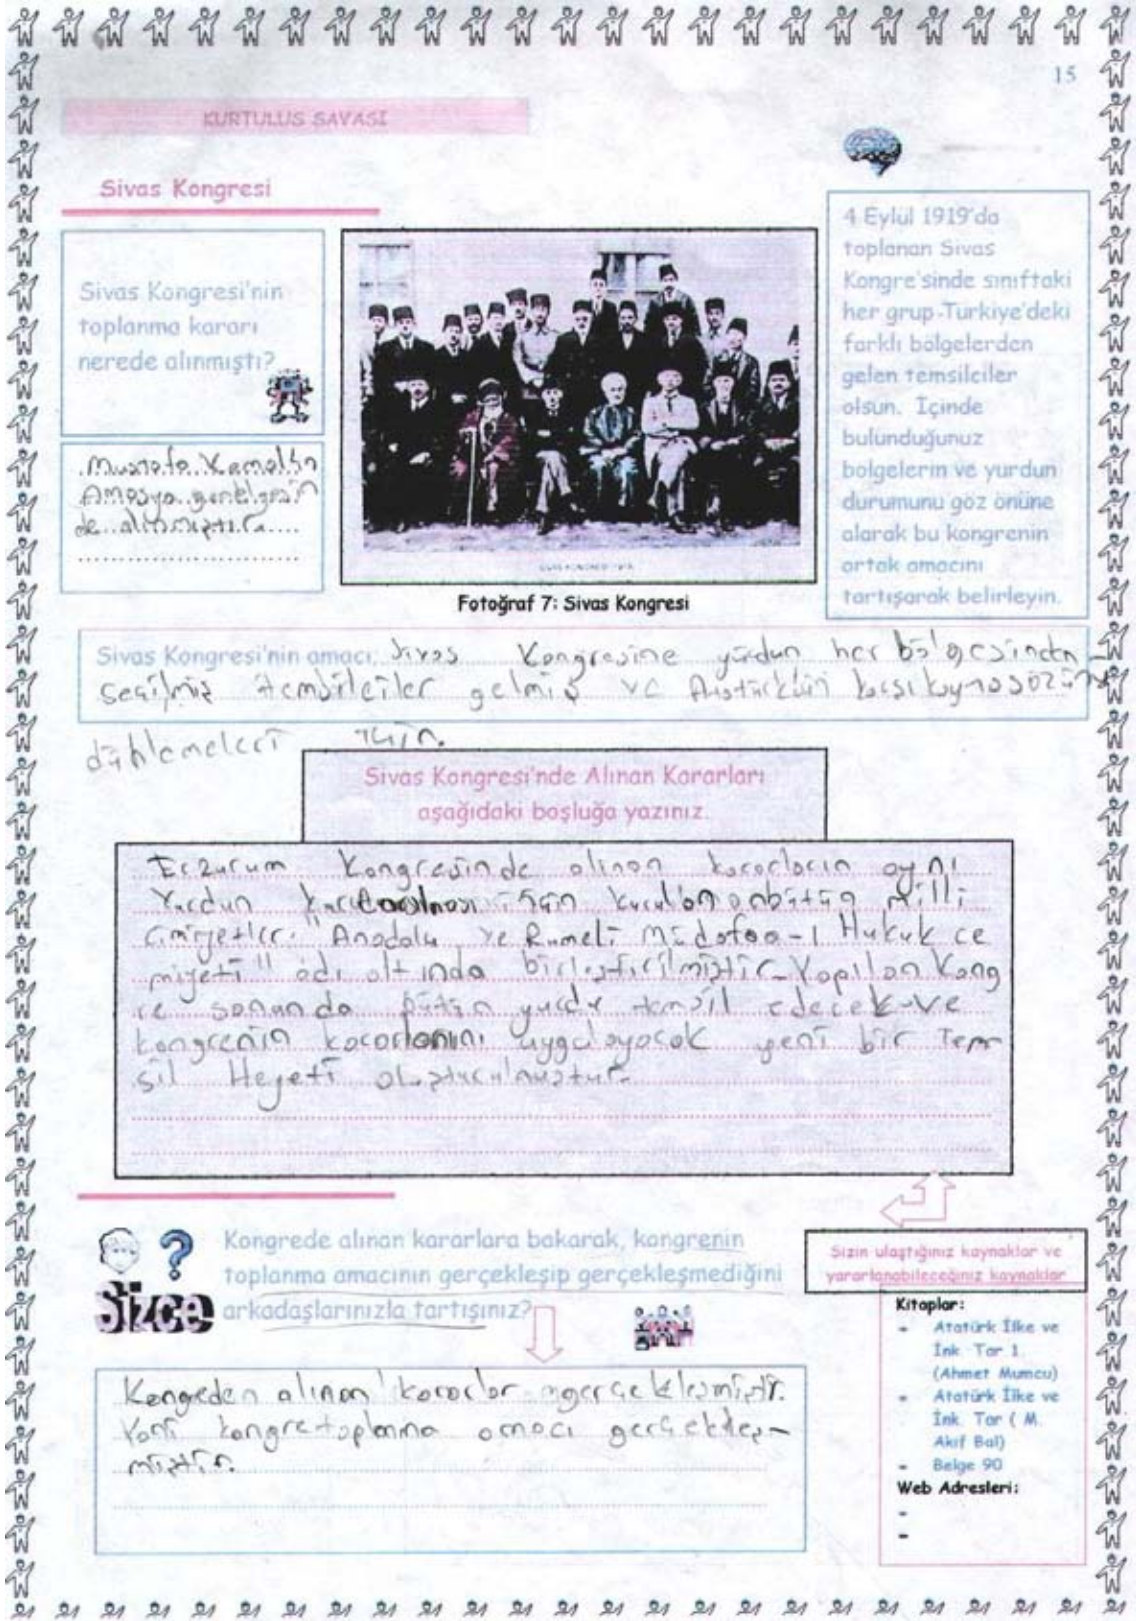 15
KURTULUS SAVASI
Sivas Kongresi
Sivas Kongresi'nin
toplanma kararı
nerede alınmıştı?
Mustafa Kemalin
Amasya genelgesin
de alınmıştır.
SIVAS KONGRESİ
Fotoğraf 7: Sivas Kongresi
4 Eylül 1919'da
toplanan Sivas
Kongre'sinde sınıftaki
her grup-Türkiye'deki
farklı bölgelerden
gelen temsilciler
olsun. İçinde
bulunduğunuz
bolgelerin ve yurdun
durumunu göz önüne
alarak bu kongrenin
ortak amacını
tartışarak belirleyin.
Sivas Kongresi'nin amacı: Sivas Kongresine yurdun her bölgesinden
seçilmiş temsilciler gelmiş ve Atatürkün
için.
Sivas Kongresi'nde Alınan Kararları
aşağıdaki boşluğa yazınız.
Erzurum Kongresinde alınan kararların aynı
Yurdun için kurulan bütün milli
cmiyetler. "Anadolu ve Rumeli Müdafaa-ı Hukuk ce
miyeti" adı altında birleştirilmiştir. Yapılan Kong
re sonunda bütün yurdu temsil edecek ve
kongrenin kararlarını uygulayacak yeni bir Tem
sil Heyeti oluşturulmuştur.
Sizce
Kongrede alınan kararlara bakarak, kongrenin
toplanma amacının gerçekleşip gerçekleşmediğini
arkadaşlarınızla tartışınız?
Kongreden alınan kararlar gerçekleşmiştir.
Yani kongre toplanma amacı gerçekleş-
miştir.
Sizin ulaştığınız kaynaklar ve
yararlanabileceğiniz kaynaklar
Kitaplar:
- Atatürk İlke ve
İnk. Tar 1.
(Ahmet Mumcu)
- Atatürk İlke ve
İnk. Tar ( M.
Akif Bal)
- Belge 90
Web Adresleri:
-
-